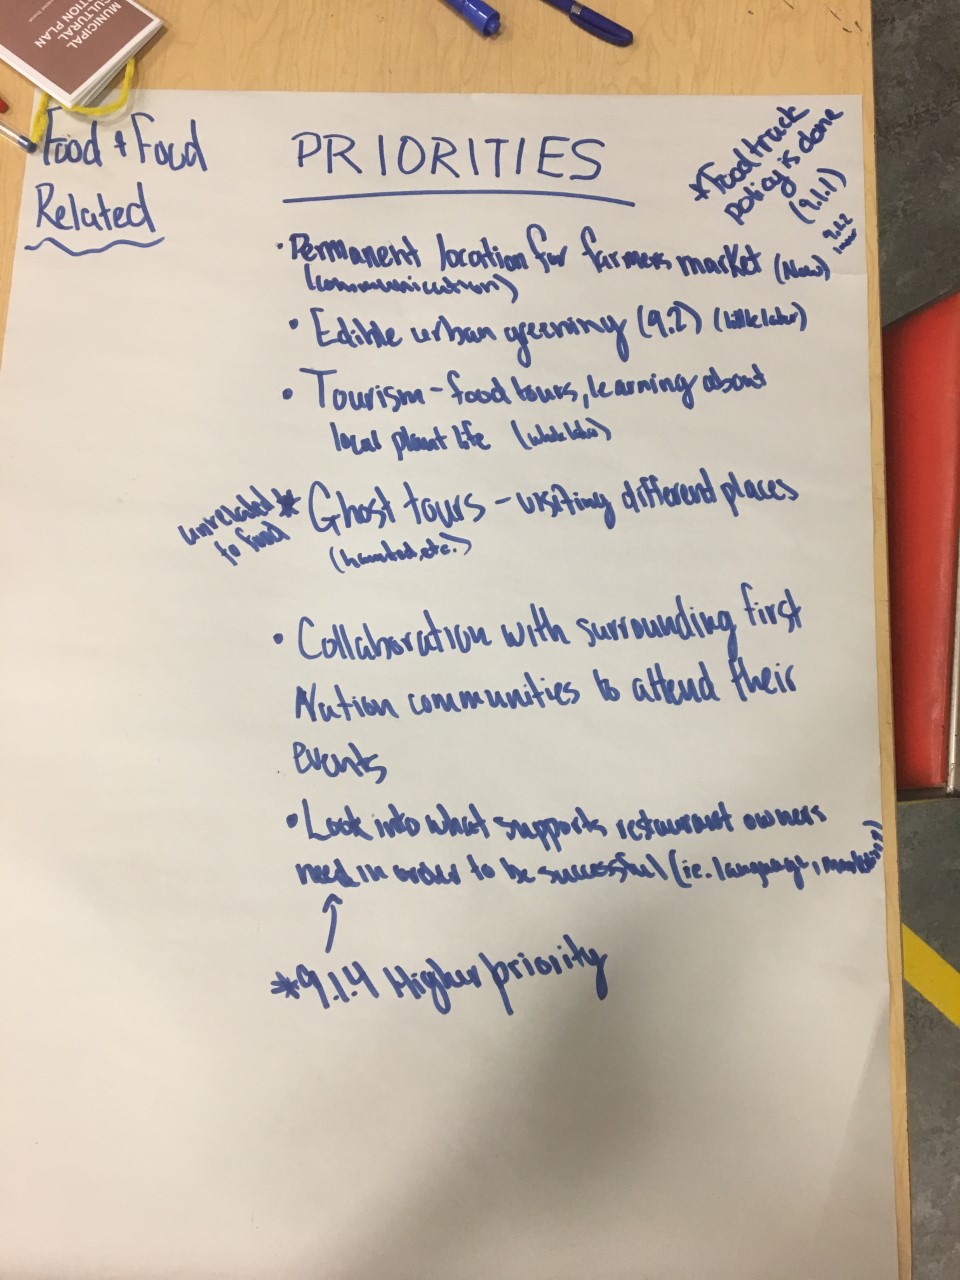 MUNICIPAL
CULTURAL
ACTION PLAN
Food + Food
Related
PRIORITIES
*Food truck
policy is done
(9.1.1)
9.2.2
• Permanent location for farmers market (Now)
(communication)
• Edible urban greening (9.2) (little later)
• Tourism - food tours, learning about
local plant life
unrelated
to food
* Ghost tours - visiting different places
(haunted, etc.)
• Collaboration with surrounding first
Nation communities to attend their
events
• Look into what supports restaurant owners
need in order to be successful (ie. language, marketing)
*9.1.4 Higher priority